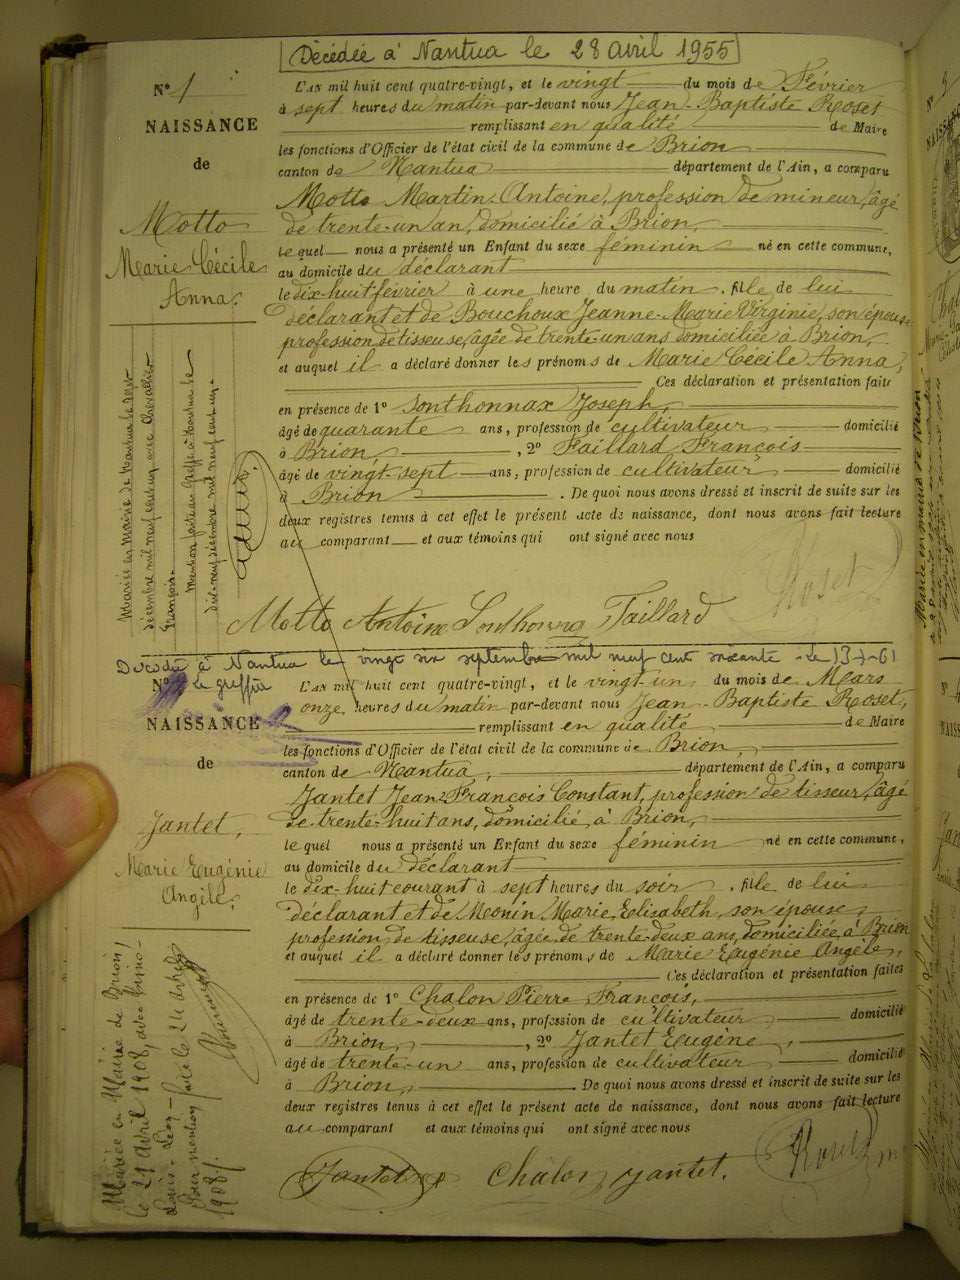 Décédée à Nantua le 28 avril 1955
N° 1
NAISSANCE
de
Motto
Marie Cécile
Anna.
L'AN mil huit cent quatre-vingt, et le vingt du mois de Février
à sept heures du matin par-devant nous Jean-Baptiste Roset
remplissant en qualité de Maire
les fonctions d'Officier de l'état civil de la commune de Brion
canton de Nantua département de l'Ain, a comparu
Motto Martin Antoine, profession de mineur, âgé
de trente-un an, domicilié à Brion,
lequel nous a présenté un Enfant du sexe féminin né en cette commune,
au domicile du déclarant
le dix-huit février à une heure du matin, fille de lui
déclarant et de Bouchoux Jeanne-Marie Virginie, son épouse
profession de tisseuse, âgée de trente-un ans domiciliée à Brion,
et auquel il a déclaré donner les prénoms de Marie Cécile Anna,
Ces déclaration et présentation faites
en présence de 1° Sonthonnax Joseph,
âgé de quarante ans, profession de cultivateur domicilié
à Brion, 2° Taillard François
âgé de vingt-sept ans, profession de cultivateur domicilié
à Brion. De quoi nous avons dressé et inscrit de suite sur les
deux registres tenus à cet effet le présent acte de naissance, dont nous avons fait lecture
au comparant et aux témoins qui ont signé avec nous
Mariée en mairie de Nantua le sept
décembre mil neuf cent un avec Chevallier
François.
Mention faite au Greffe à Nantua le
dix-neuf décembre mil neuf cent un.
Roset
Motto Antoine Sonthonnax Taillard
Décédée à Nantua le vingt six septembre mil neuf cent soixante - le 13-1-61
Le greffier
N°
NAISSANCE
de
Jantet,
Marie Eugénie
Angèle,
L'AN mil huit cent quatre-vingt, et le vingt-un du mois de Mars
onze heures du matin par-devant nous Jean-Baptiste Roset,
remplissant en qualité de Maire
les fonctions d'Officier de l'état civil de la commune de Brion,
canton de Nantua, département de l'Ain, a comparu
Jantet Jean-François Constant, profession de tisseur, âgé
de trente-huit ans, domicilié à Brion,
lequel nous a présenté un Enfant du sexe féminin né en cette commune,
au domicile du déclarant
le dix-huit courant à sept heures du soir, fille de lui
déclarant et de Monin Marie Elisabeth, son épouse,
profession de tisseuse, âgée de trente-deux ans, domiciliée à Brion
et auquel il a déclaré donner les prénoms de Marie Eugénie Angèle,
Ces déclaration et présentation faites
en présence de 1° Chalon Pierre François,
âgé de trente-deux ans, profession de cultivateur domicilié
à Brion, 2° Jantet Eugène,
âgé de trente-un ans, profession de cultivateur domicilié
à Brion, De quoi nous avons dressé et inscrit de suite sur les
deux registres tenus à cet effet le présent acte de naissance, dont nous avons fait lecture
au comparant et aux témoins qui ont signé avec nous
Mariée en Mairie de Brion
le 21 avril 1908, avec
Louis-Léon
Pour mention faite le 24 avril
1908.
Jantet Chalon Jantet. Roset